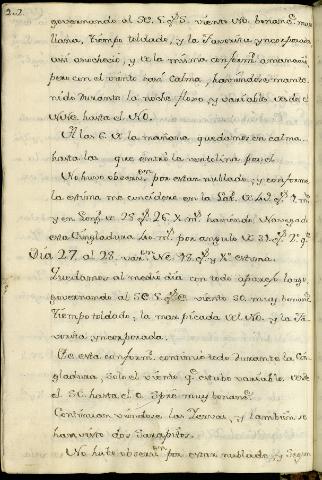 22.
governando al SE, viento NO. bonanc.
llana, tiempo toldado, y la Favorita yncorporada
asi anochecio, y de la misma conform.ᵈ amanecio,
pero con el viento casi calma, haviendose mante-
nido durante la noche floxo y variable desde el
NNE. hasta el NO.
A las 6 de la mañana quedamos en calma
hasta las que entró la ventolina por el
No huvo observ.ᵒⁿ por estar nublado, y conforme
la estima me considere en la Lat. de 42 g.ˢ 2 m.ˢ
y en Long. de 28 g.ˢ 26 m.ˢ haviendo Navegado
esta Cingladura 40 m.ˢ por angulo de 32 g.ˢ 2.º q.ᵉ
Dia 27 al 28. var.ᵒⁿ NE. 18 g.ˢ y estima.
Quedamos al medio dia con todo aparejo largo,
governando al SE viento SO. muy bonanc.
tiempo toldado, la mar picada del NO. y la Fa-
vorita yncorporada.
En esta conform.ᵈ continuó todo durante la Cin-
gladura, solo el viento q.ᵉ estubo variable, desde
el SE hasta el O. spre muy bonanc.
Continuan viendose las Yervas, y tambien se
han visto dos Sarapicos.
No hubo observ.ᵒⁿ por estar nublado, y segun